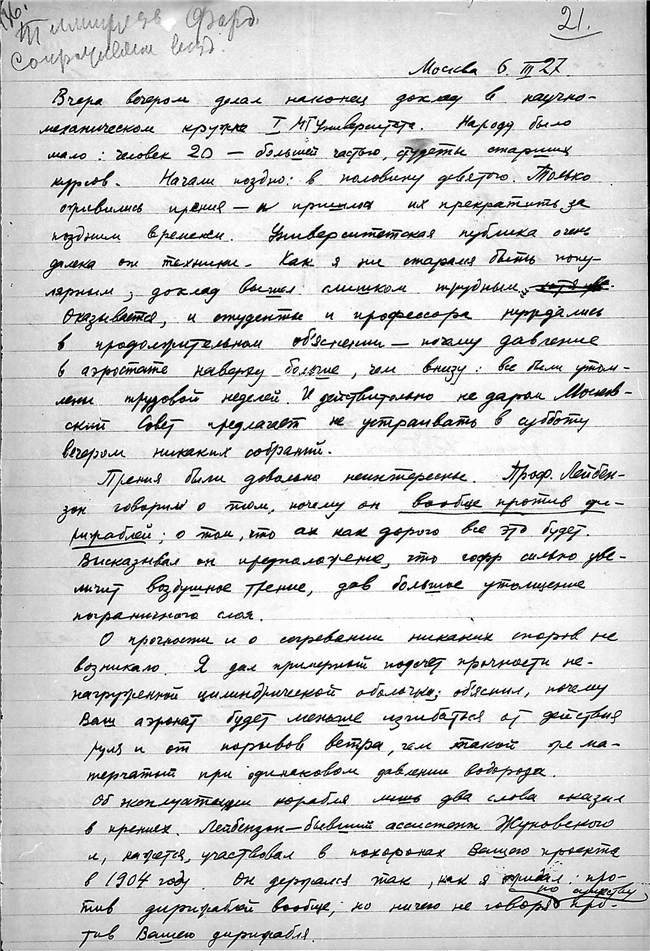 21.
Москва 6 III 27.
Вчера вечером делал наконец доклад в научно-
механическом кружке I МГУниверситета. Народу было
мало: человек 20 — большей частью, студенты старших
курсов. Начали поздно: в половину девятого. Только
оживились прения — и пришлось их прекратить за
поздним временем. Университетская публика очень
далека от техники. Как я ни старался быть попу-
лярным, доклад вышел слишком трудным,
Оказывается, и студенты и профессора нуждались
в продолжительном объяснении — почему давление
в аэростате наверху больше, чем внизу: все были утом-
лены трудовой неделей. И действительно не даром Москов-
ский Совет предлагает не устраивать в субботу
вечером никаких собраний.
Прения были довольно неинтересны. Проф. Лейбен-
зон говорил о том, почему он вообще против ди-
рижаблей; о том, что ах как дорого все это будет.
Высказывал он предположение, что гофр сильно уве-
личит воздушное трение, дав большое утолщение
пограничного слоя.
О прочности и о согревании никаких споров не
возникало. Я дал примерный подсчет прочности не-
нагруженной цилиндрической оболочки; объяснил, почему
Ваш аэронат будет меньше изгибаться от действия
руля и от порывов ветра, чем такой же ма-
терчатый при одинаковом давлении водорода.
Об эксплуатации корабля лишь два слова сказал
в прениях. Лейбензон — бывший ассистент Жуковского
и, кажется, участвовал в похоронах Вашего проекта
в 1904 году. Он держался так, как я ожидал: про-
тив дирижаблей вообще; но ничего не говоря по существу про-
тив Вашего дирижабля.